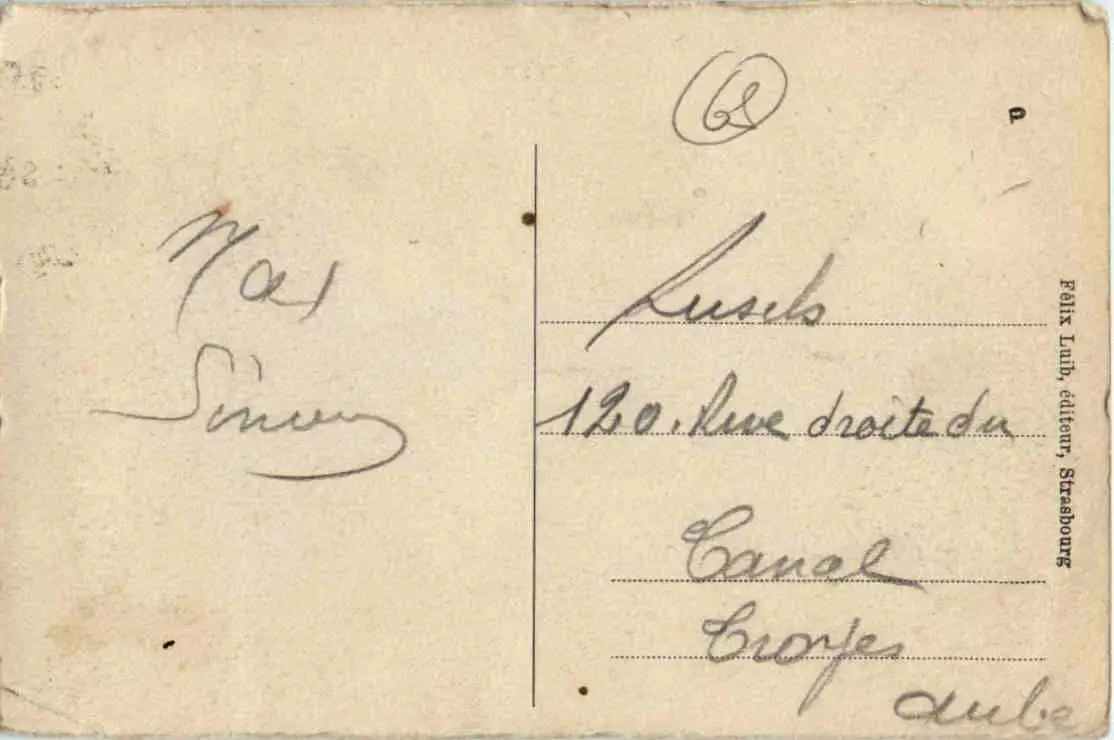 Max
Simon
68
120. Rue droite du
Canal
Troyes
Aube
Félix Luib, éditeur, Strasbourg